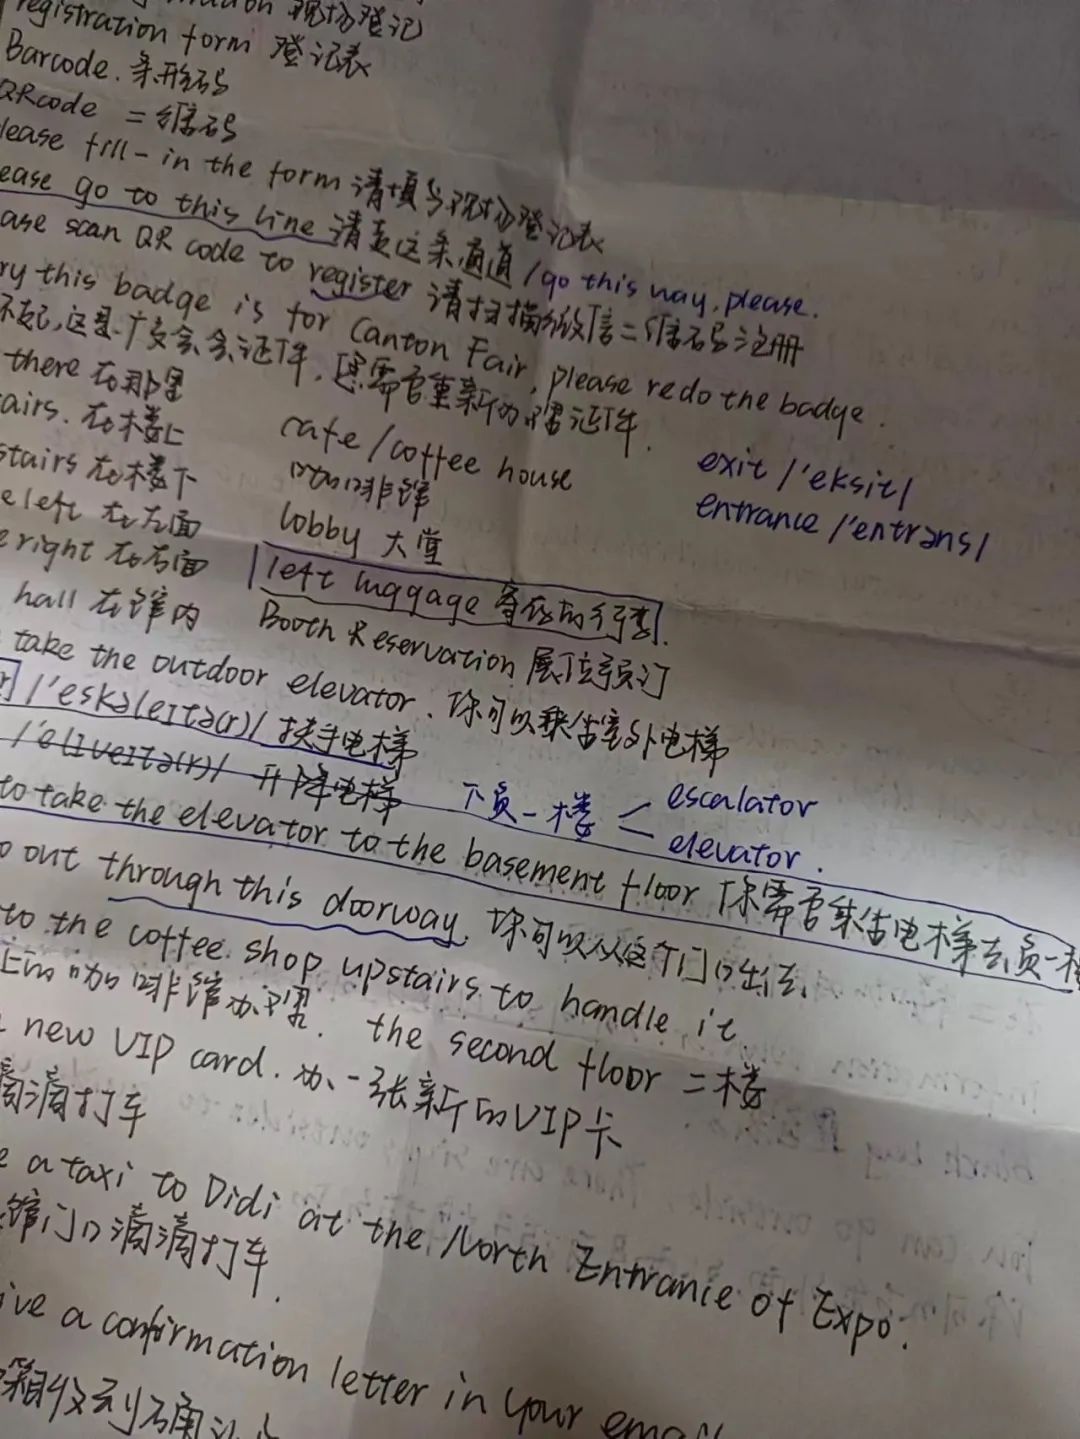 现场登记
registration form 登记表
Barcode. 条形码
QRcode 二维码
lease fill-in the form 请填写现场登记表
ease go to this line 请走这条通道 / go this way, please.
ase scan QR code to register 请扫描微信二维码注册
ry this badge is for Canton Fair, please redo the badge.
不起,这是广交会会证件,您需要重新办理证件.
there 在那里
airs. 在楼上
cafe / coffee house
stairs 在楼下
咖啡馆
exit /'eksit/
e left 在左面
lobby 大堂
entrance /'entrəns/
e right 在右面
left luggage 寄存的行李.
hall 在馆内
Booth Reservation 展位预订
take the outdoor elevator. 你可以乘坐室外电梯
/'eskəleɪtə(r)/ 扶手电梯
/'elɪveɪtə(r)/ 升降电梯
下负一楼
escalator
elevator.
to take the elevator to the basement floor 你需要乘坐电梯去负一楼
o out through this doorway. 你可以从这个门口出去.
to the coffee shop upstairs to handle it
上的咖啡馆办理. the second floor 二楼
new VIP card. 办一张新的VIP卡
滴滴打车
e a taxi to Didi at the North Entrance of Expo.
馆门口滴滴打车.
ive a confirmation letter in your email
箱收到确认